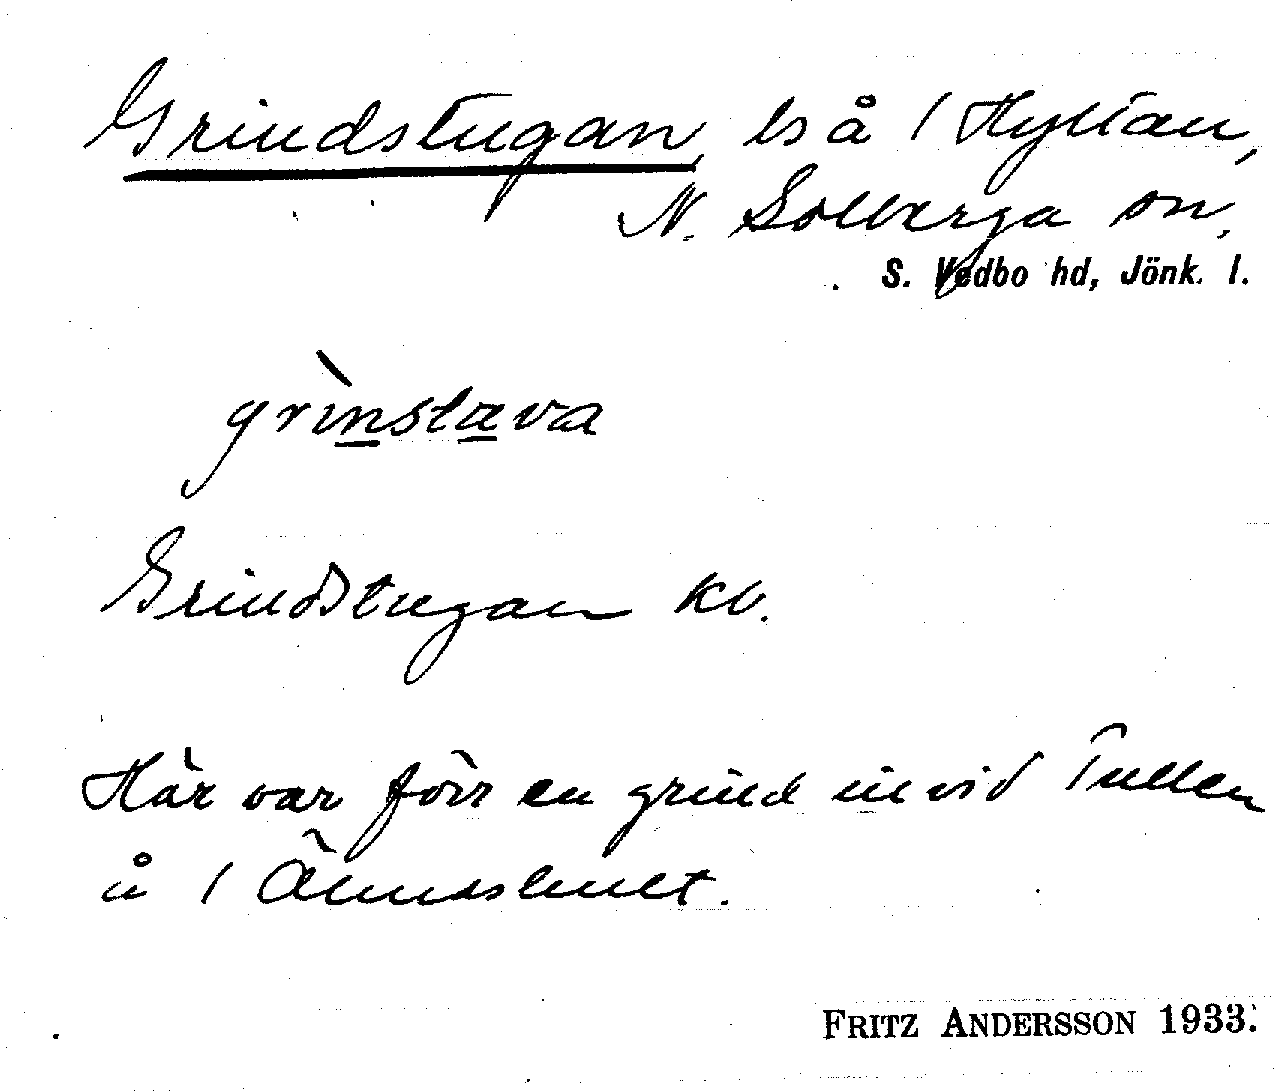 Grindstugan, ls å 1 Hyltan,
N. Solberga sn,
S. Vedbo hd, Jönk. l.
grìnstæva
Grindstugan kb.
Här var förr en grind invid Tullen
å 1 Älmeshult.
FRITZ ANDERSSON 1933.